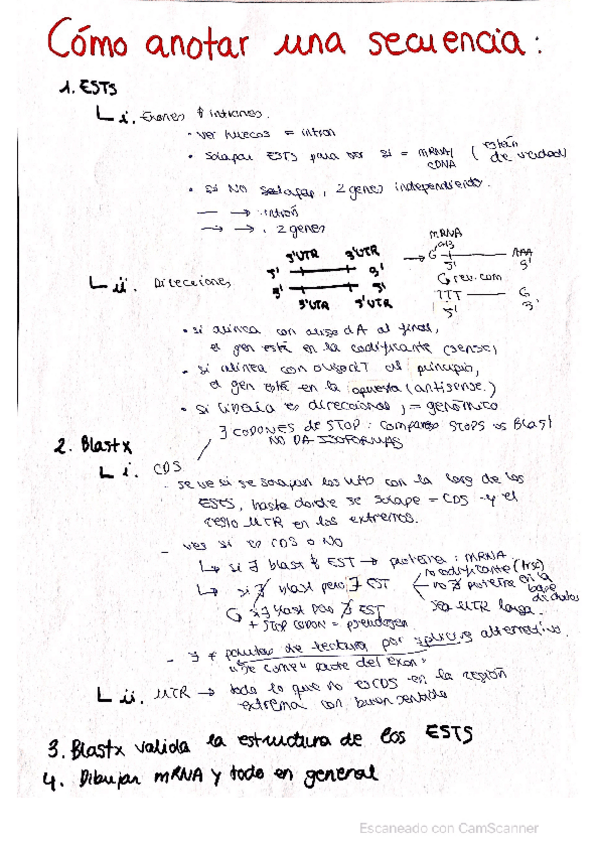 Cómo anotar una secuencia:
1. ESTs
i. Exones e intrones.
· ver huecos = intron
· solapar ESTs para ver si = mRNA/cDNA (están de verdad)
· si NO solapan, 2 genes independiente.
— → intrón
→ → . 2 genes
ii. Direcciones
5'UTR 3'UTR
5' 3'
3' 5'
3'UTR 5'UTR
mRNA
→ G AAA
5' 3'
rev. com
TTT G
5' 3'
· si alinea con oligo dA al final,
el gen está en la codificante (sense)
· si alinea con oligo dT al principio,
el gen está en la opuesta (antisense.)
· si es direcciones, = genómico
∃ CODONES de STOP: comparas STOPS vs Blast
NO DA ISOFORMAS
2. Blastx
i. CDS
- se ve si se solapan los con la de los
ESTS, hasta donde se solape = CDS y el
resto UTR en los extremos.
- ves si es CDS o NO
↳ si ∃ blast y EST → proteina : mRNA
↳ si ∄ blast pero ∃ EST
no codificante
no ∃ proteina en la base de datos
sea UTR larga.
si ∃ blast pero ∄ EST
+ STOP CODON = pseudogen
- ∃ ≠ pautas de lectura por splicing alternativo.
"se come" parte del exon"
ii. UTR → todo lo que no es CDS en la región
extrema con buen sentido
3. Blastx valida la estructura de los ESTS
4. Dibujar mRNA y todo en general
Escaneado con CamScanner